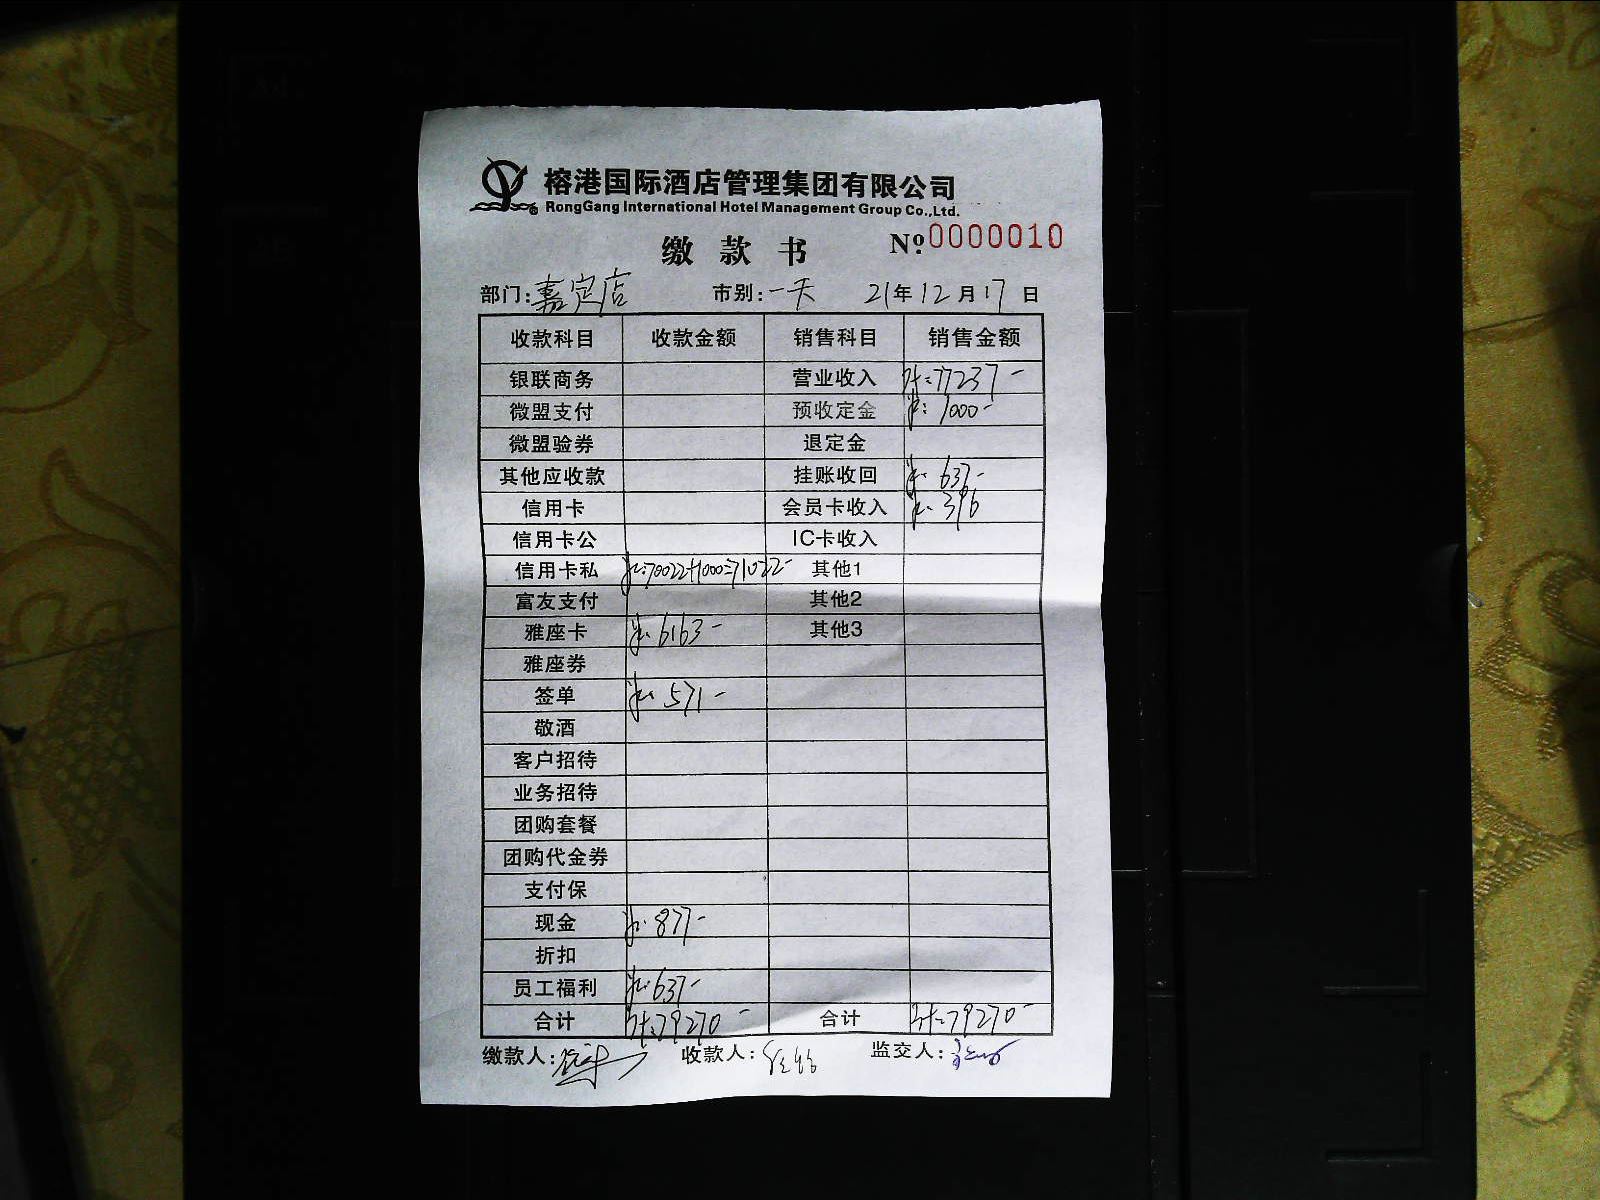 榕港国际酒店管理集团有限公司
RongGang International Hotel Management Group Co.,Ltd.
缴款书 №0000010
部门:嘉定店 市别:一天 21年12月17日
收款科目 收款金额 销售科目 销售金额
银联商务 营业收入 计:77237-
微盟支付 预收定金 1000-
微盟验券 退定金
其他应收款 挂账收回 637-
信用卡 会员卡收入 396
信用卡公 IC卡收入
信用卡私 70022+1000=71022- 其他1
富友支付 其他2
雅座卡 6163- 其他3
雅座券
签单 571-
敬酒
客户招待
业务招待
团购套餐
团购代金券
支付保
现金 877-
折扣
员工福利 637-
合计 计:79270- 合计 计:79270-
缴款人: 收款人: 监交人: